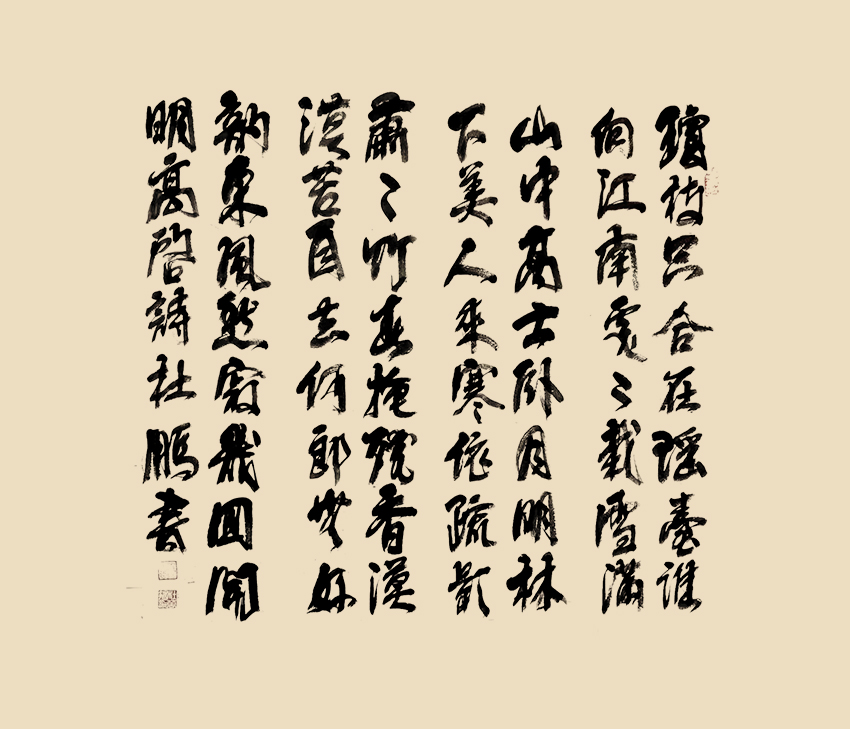 瓊枝只合在瑶臺誰
向江南處〻栽雪滿
山中高士卧月明林
下美人來寒依疏影
蕭〻竹春掩殘香漠
漠苔自去何郎無好
韵東風愁寂幾回開
明高啓詩杜鵬書